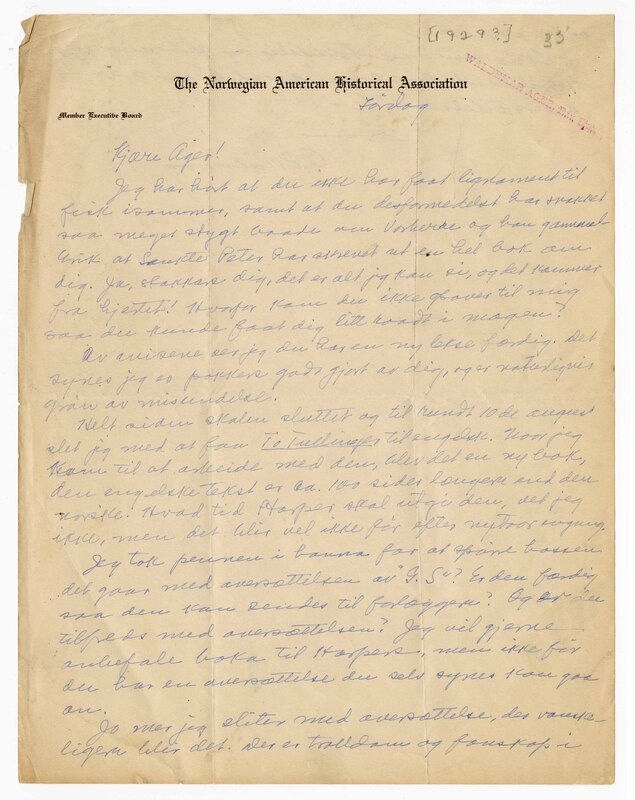 [1929?] 35
WALDEMAR AGER, EAU
The Norwegian American Historical Association
Member Executive Board
Lørdag
Kjære Ager!
Jeg har hørt at du ikke har faat lignament til
fisk isommer, samt at du desformedelst har snakket
saa meget stygt baade om Vorherre og han gammel-
Erik at Sankte Peter har skrevet ut en hel bok om
dig. Ja, stakkars dig, det er alt jeg kan si, og det kommer
fra hjertet! Hvorfor kom du ikke over til mig
saa du kunde faat dig litt i magen?
Av avisene ser jeg du har en ny bok færdig. Det
synes jeg er pokkers godt gjort av dig, og er naturligvis
grøn av misundelse.
Helt siden skolen sluttet og til rundt 10de august
slet jeg med at faa To Tullinger til engelsk. Naar jeg
kom til at arbeide med den, blev det en ny bok,
den engelske tekst er ca. 100 sider længere end den
norske. Hvad tid Harper skal utgi den, vet jeg
ikke, men det blir vel ikke før efter nytaar engang.
Jeg tok pennen i haanna for at spørre hossen
det gaar med oversættelsen av "G. S."? Er den færdig
saa den kan sendes til forlæggern? Og er du
tilfreds med oversættelsen? Jeg vil gjerne
anbefale boka til Harpers, men ikke før
du har en oversættelse du selv synes kan gaa
an.
Jo mer jeg sliter med oversættelse, des vanske-
ligere blir det. Der er trolldom og fanskap i